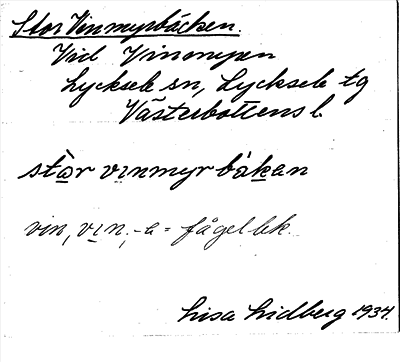 Stor Vinmyrbäcken.
Vid Vinmyren
Lycksele sn, Lycksele tg
Västerbottens l.
stàr vınmyrbäkan
vin, vın, -a = fågellek.
Lisa Lidberg 1934.